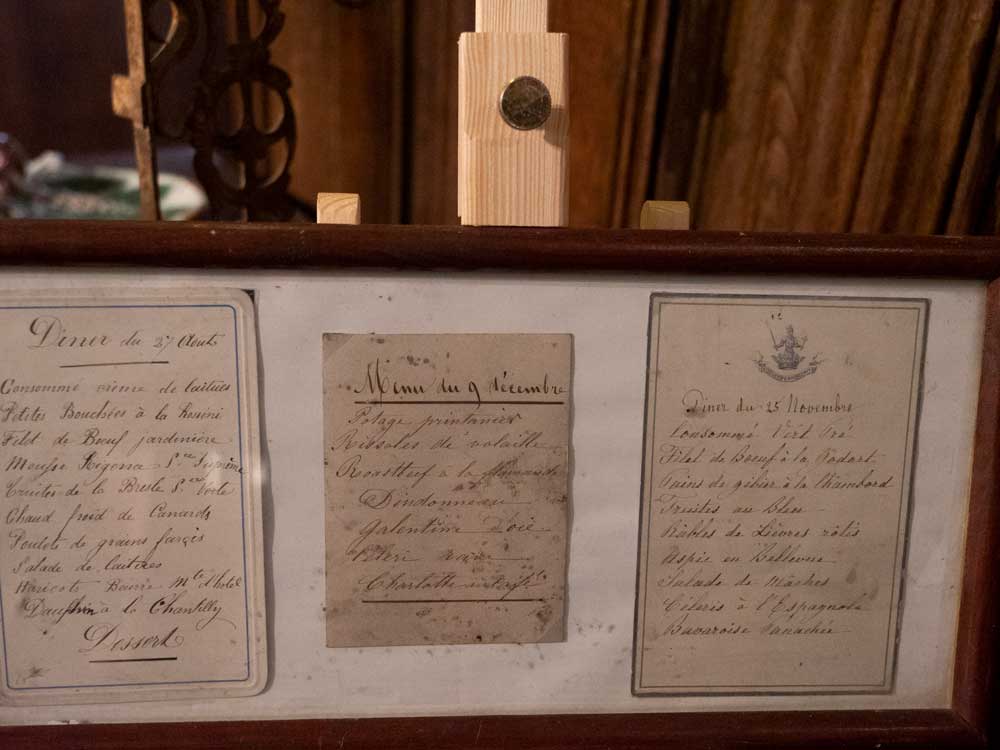 Diner du 27 Août
Consommé crème de laitues
Petites Bouchées à la Rossini
Filet de Bœuf jardinière
Suprême
Truites de la Bresle S.ce Verte
Chaud froid de Canards
Poulets de grains farcis
Salade de laitues
Haricots Beurre M.tre d'hotel
Dauphin à la Chantilly
Dessert
Menu du 9 décembre
Potage printanier
Rissoles de volaille
Roastbeef à la flamande
Dindonneau
Galentine d'oie
Charlotte
Diner du 25 Novembre
Consommé Vert Pré
Filet de Boeuf à la Godart
Pains de gibier à la Chambord
Truites au Bleu
Râbles de Lièvres rôtis
Aspic en Bellevue
Salade de Mâches
Céleris à l'Espagnole
Bavaroise Panachée